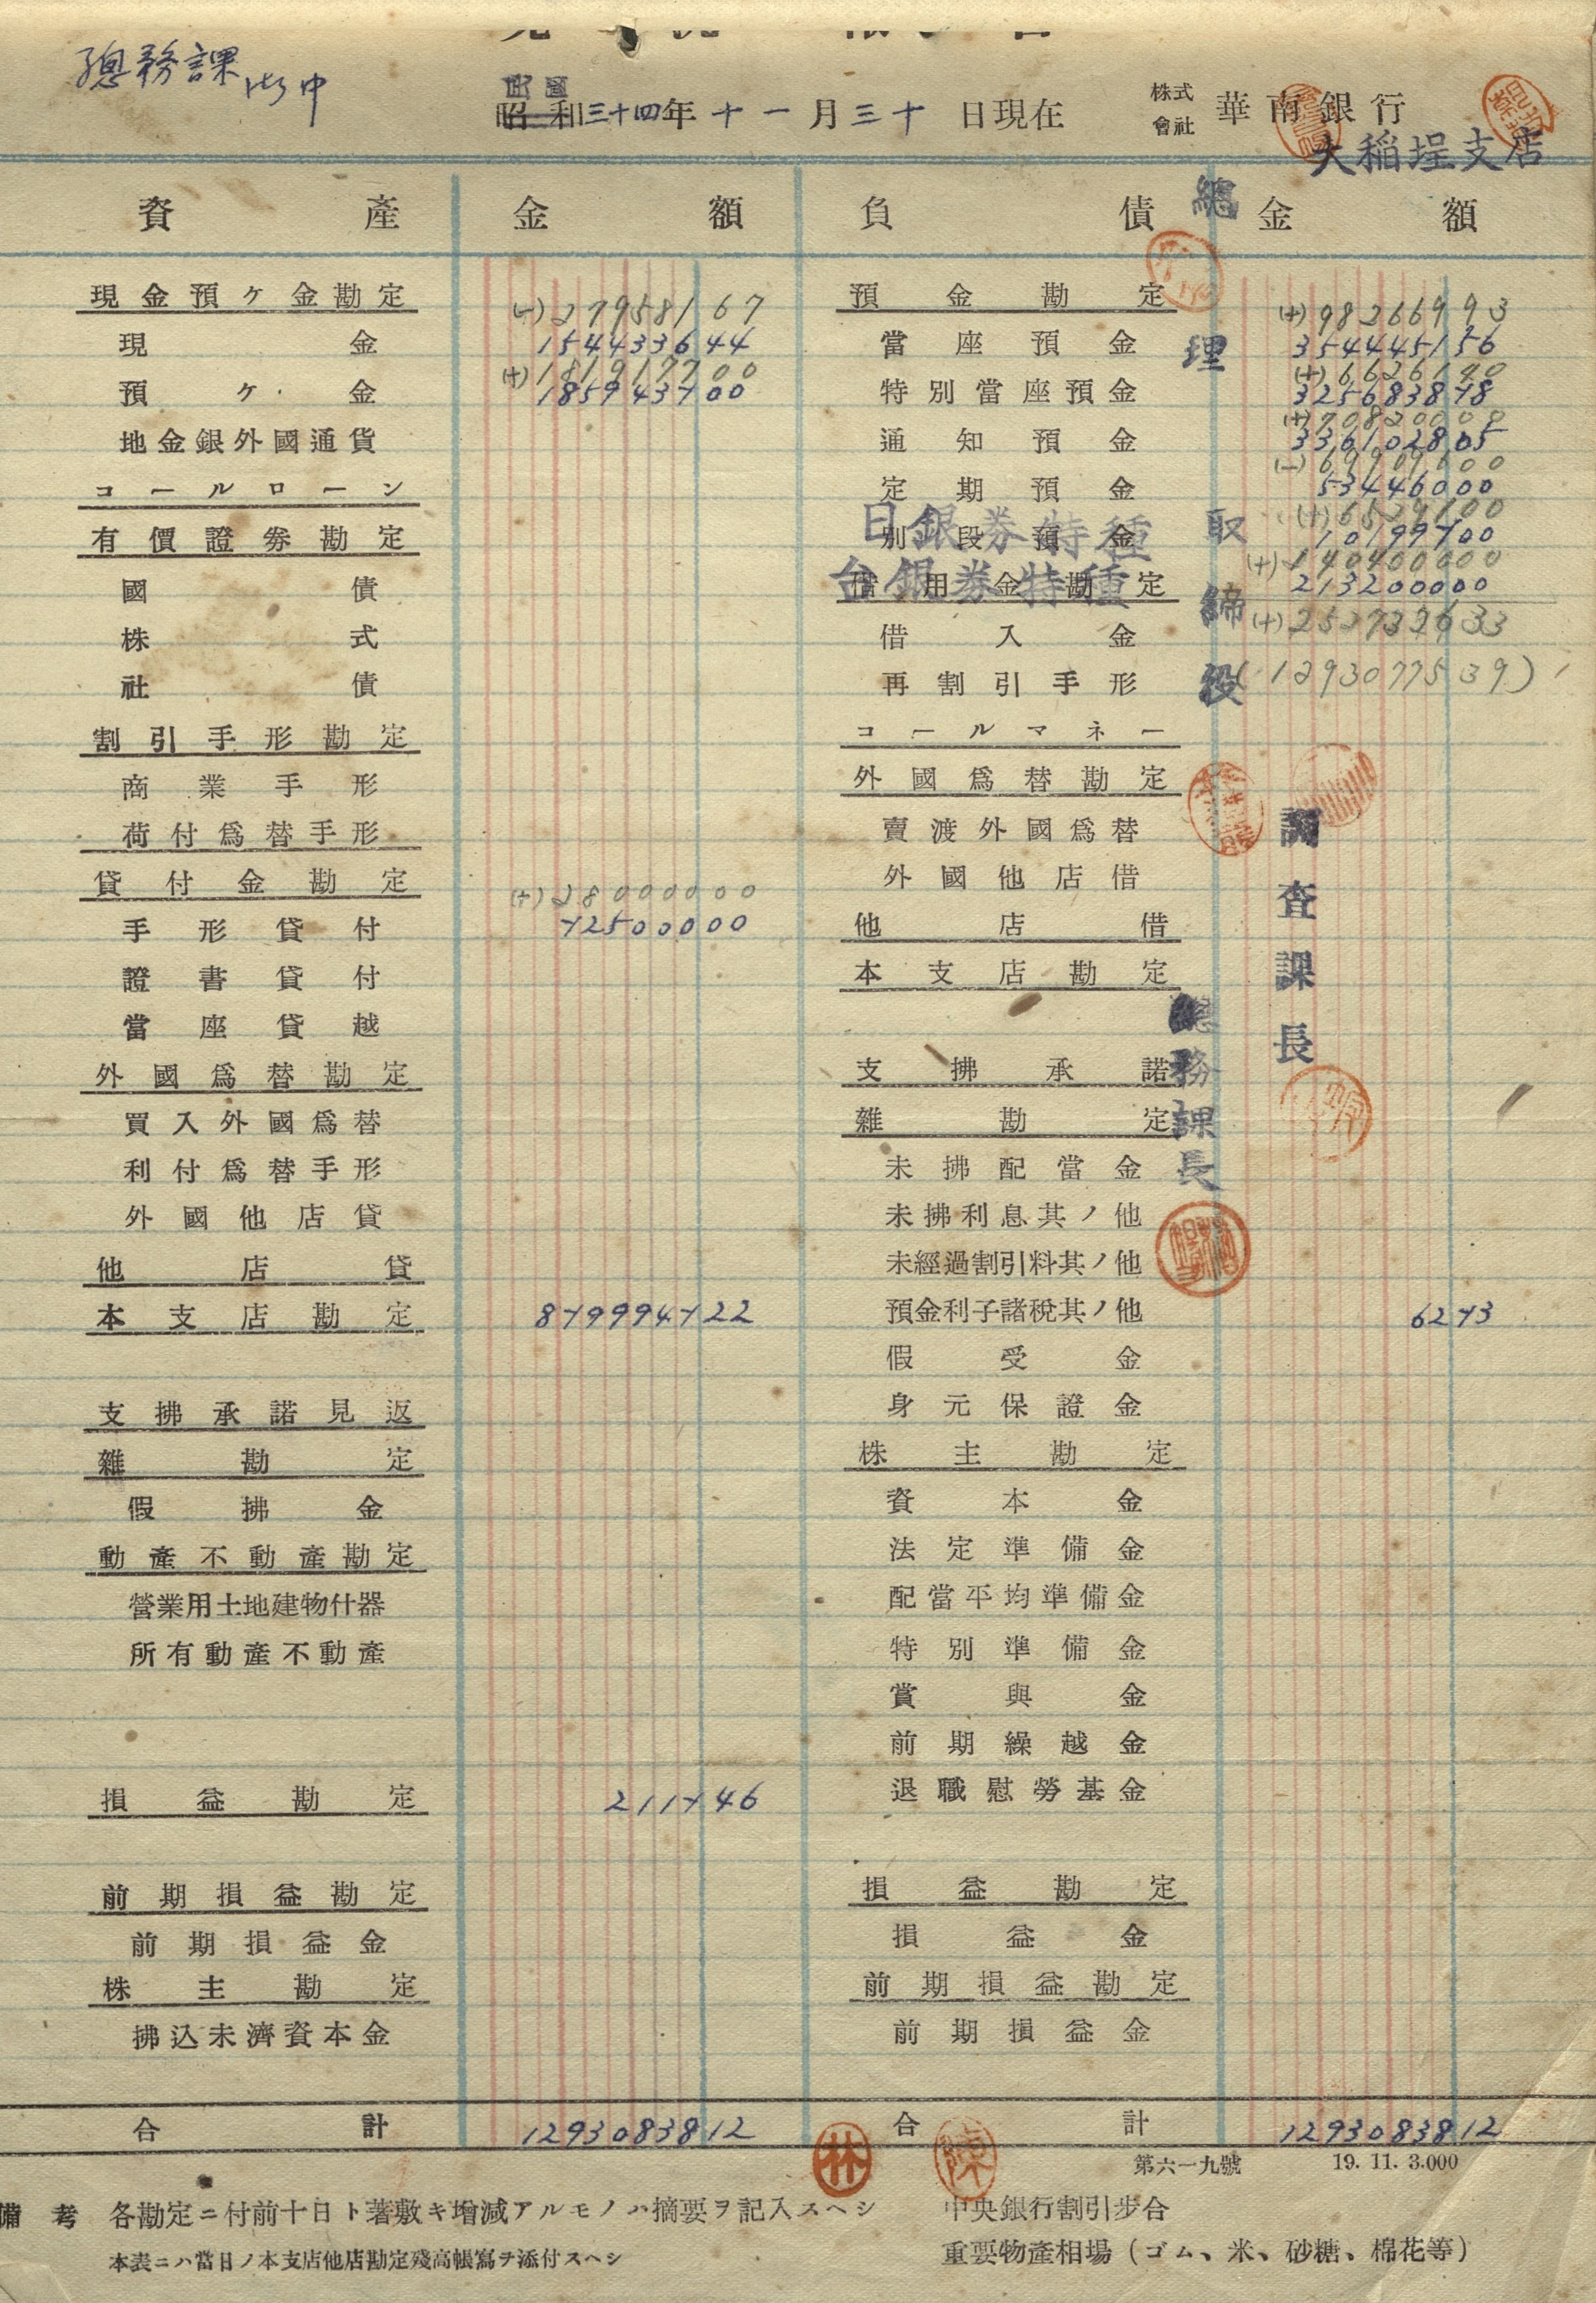 總務課 御中
民國
昭和三十四年十一月三十日現在
株式會社 華南銀行
大稻埕支店
資產 金額 負債 金額
現金預ケ金勘定
(-) 279581 67
現金 1544336 44
(+) 1819177 00
預ケ金 1859437 00
地金銀外國通貨
コールローン
有價證券勘定
國債
株式
社債
割引手形勘定
商業手形
荷付爲替手形
貸付金勘定
(+) 280000 00
手形貸付 725000 00
證書貸付
當座貸越
外國爲替勘定
買入外國爲替
利付爲替手形
外國他店貸
他店貸
本支店勘定 8799947 22
支拂承諾見返
雜勘定
假拂金
動產不動產勘定
營業用土地建物什器
所有動產不動產
損益勘定 2117 46
前期損益勘定
前期損益金
株主勘定
拂込未濟資本金
合計 12930838 12
預金勘定
(+) 982669 93
當座預金 3544451 56
(+) 66261 40
特別當座預金 3256838 78
(+) 708200 00
通知預金 3361028 05
(-) 699096 00
定期預金 534460 00
(+) 65291 00
別段預金 101997 00
日銀券特種
(+) 1404000 00
借用金勘定 2132000 00
台銀券特種
借入金 (+) 2527326 33
再割引手形 (12930775 39)
コールマネー
外國爲替勘定
賣渡外國爲替
外國他店借
他店借
本支店勘定
支拂承諾
雜勘定
未拂配當金
未拂利息其ノ他
未經過割引料其ノ他
預金利子諸稅其ノ他 62 73
假受金
身元保證金
株主勘定
資本金
法定準備金
配當平均準備金
特別準備金
賞與金
前期繰越金
退職慰勞基金
損益勘定
損益金
前期損益勘定
前期損益金
合計 12930838 12
總理
取締役
調査課長
總務課長
林
陳
第六一九號 19. 11. 3.000
備考 各勘定ニ付前十日ト著敷キ增減アルモノハ摘要ヲ記入スヘシ
本表ニハ當日ノ本支店他店勘定殘高帳寫ヲ添付スヘシ
中央銀行割引步合
重要物產相場（ゴム、米、砂糖、棉花等）